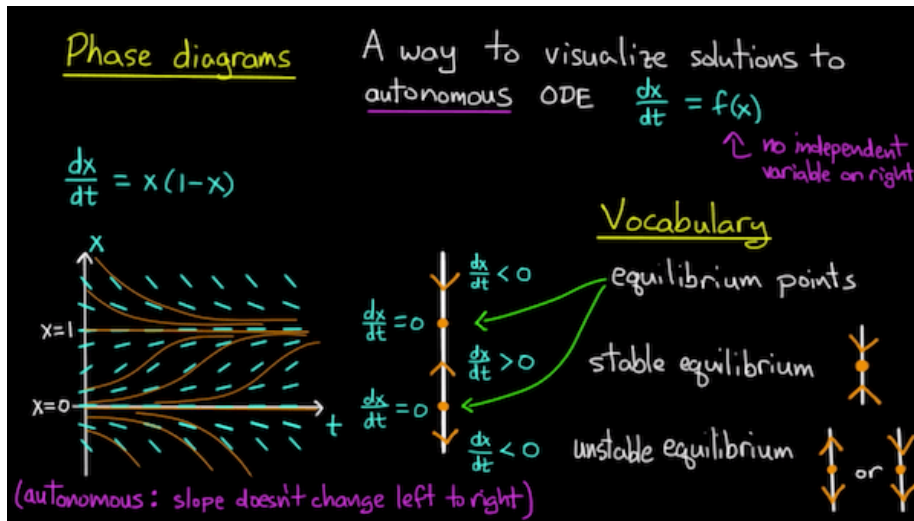 Phase diagrams
A way to visualize solutions to
autonomous ODE dx/dt = f(x)
no independent
variable on right
dx/dt = x(1-x)
Vocabulary
x
x=1
x=0
t
dx/dt < 0
dx/dt = 0
dx/dt > 0
dx/dt = 0
dx/dt < 0
equilibrium points
stable equilibrium
unstable equilibrium
or
(autonomous: slope doesn't change left to right)